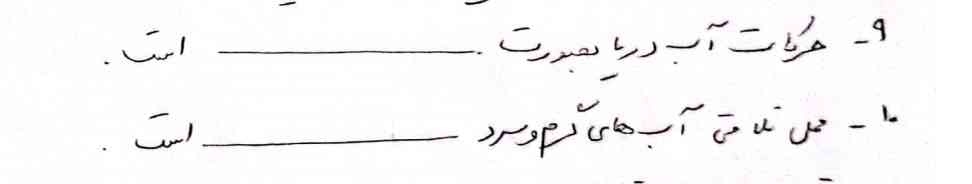 ۹- حرکات آب دریا بصورت ــــــــــــــــ است .
۱۰- محل تلاقی آب های گرم و سرد ــــــــــــــــ است .